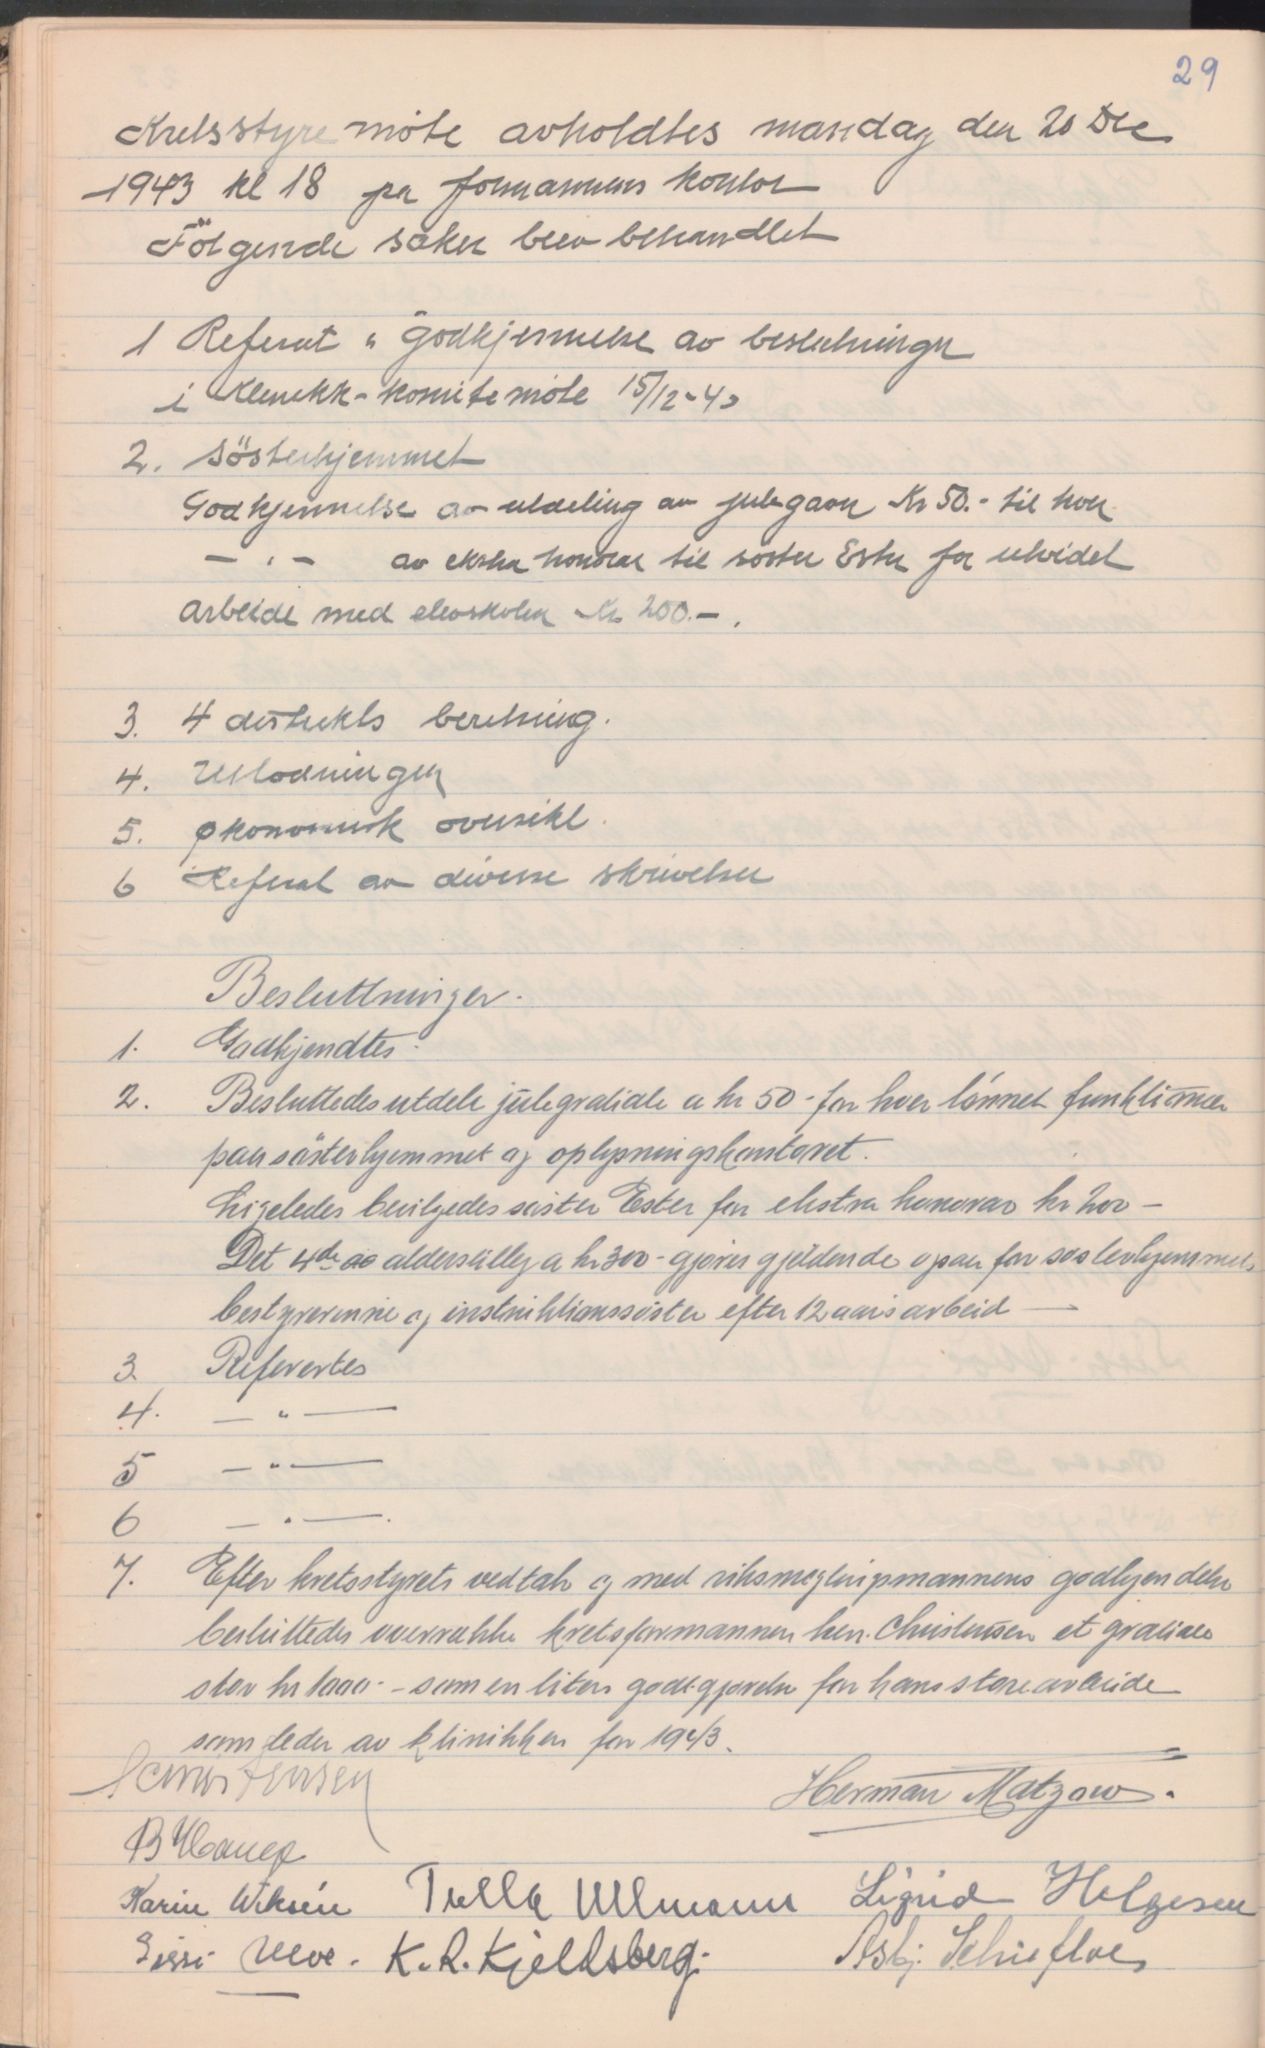 29
Kretsstyremöte avholdtes mandag den 20 Dec
1943 kl 18 pa formannens kontor
Fölgende saker blev behandlet
1 Referat " Godkjennelse av beslutninger
i klinikk-komitemöte 15/12-43
2. Sösterhjemmet
Godkjennelse av utdeling av julegaver Kr 50.- til hver.
— " — av ekstra honorar til söster Ester for utvidet
arbeide med elevskolen Kr 200.-.
3. 4 distrikts beretning.
4. Utlodningen
5. Økonomisk oversikt.
6 Referat av diverse skrivelser
Besluttninger.
1. Godkjendtes.
2. Besluttedes utdele julegratiale a kr 50- for hver lönnet funktionær
paa sösterhjemmet og oplysningskontoret.
Ligeledes bevilgedes söster Ester for ekstra honorar kr 200 —
Det 4de alderstillæg a kr 300- gjøres gjeldende ogsaa for søsterhjemmets
bestyrerinne og instruktionssöster efter 12 aars arbeid —
3. Referertes
4. — " —
5 — " —
6 — " —.
7. Efter kretsstyrets vedtak og med godkjendelse
besluttedes overrække kretsformannen herr. Christensen et gratiale
stor kr 1000.- som en liten godtgjørelse for hans store arbeide
som leder av klinikken for 1943.
Christensen
Herman Matzow.
Karin Wiksén Tulla Ullmann Sigrid Helgesen
Sissi Ulve. K. R. Kjeldsberg. Asbj. Schiefloe